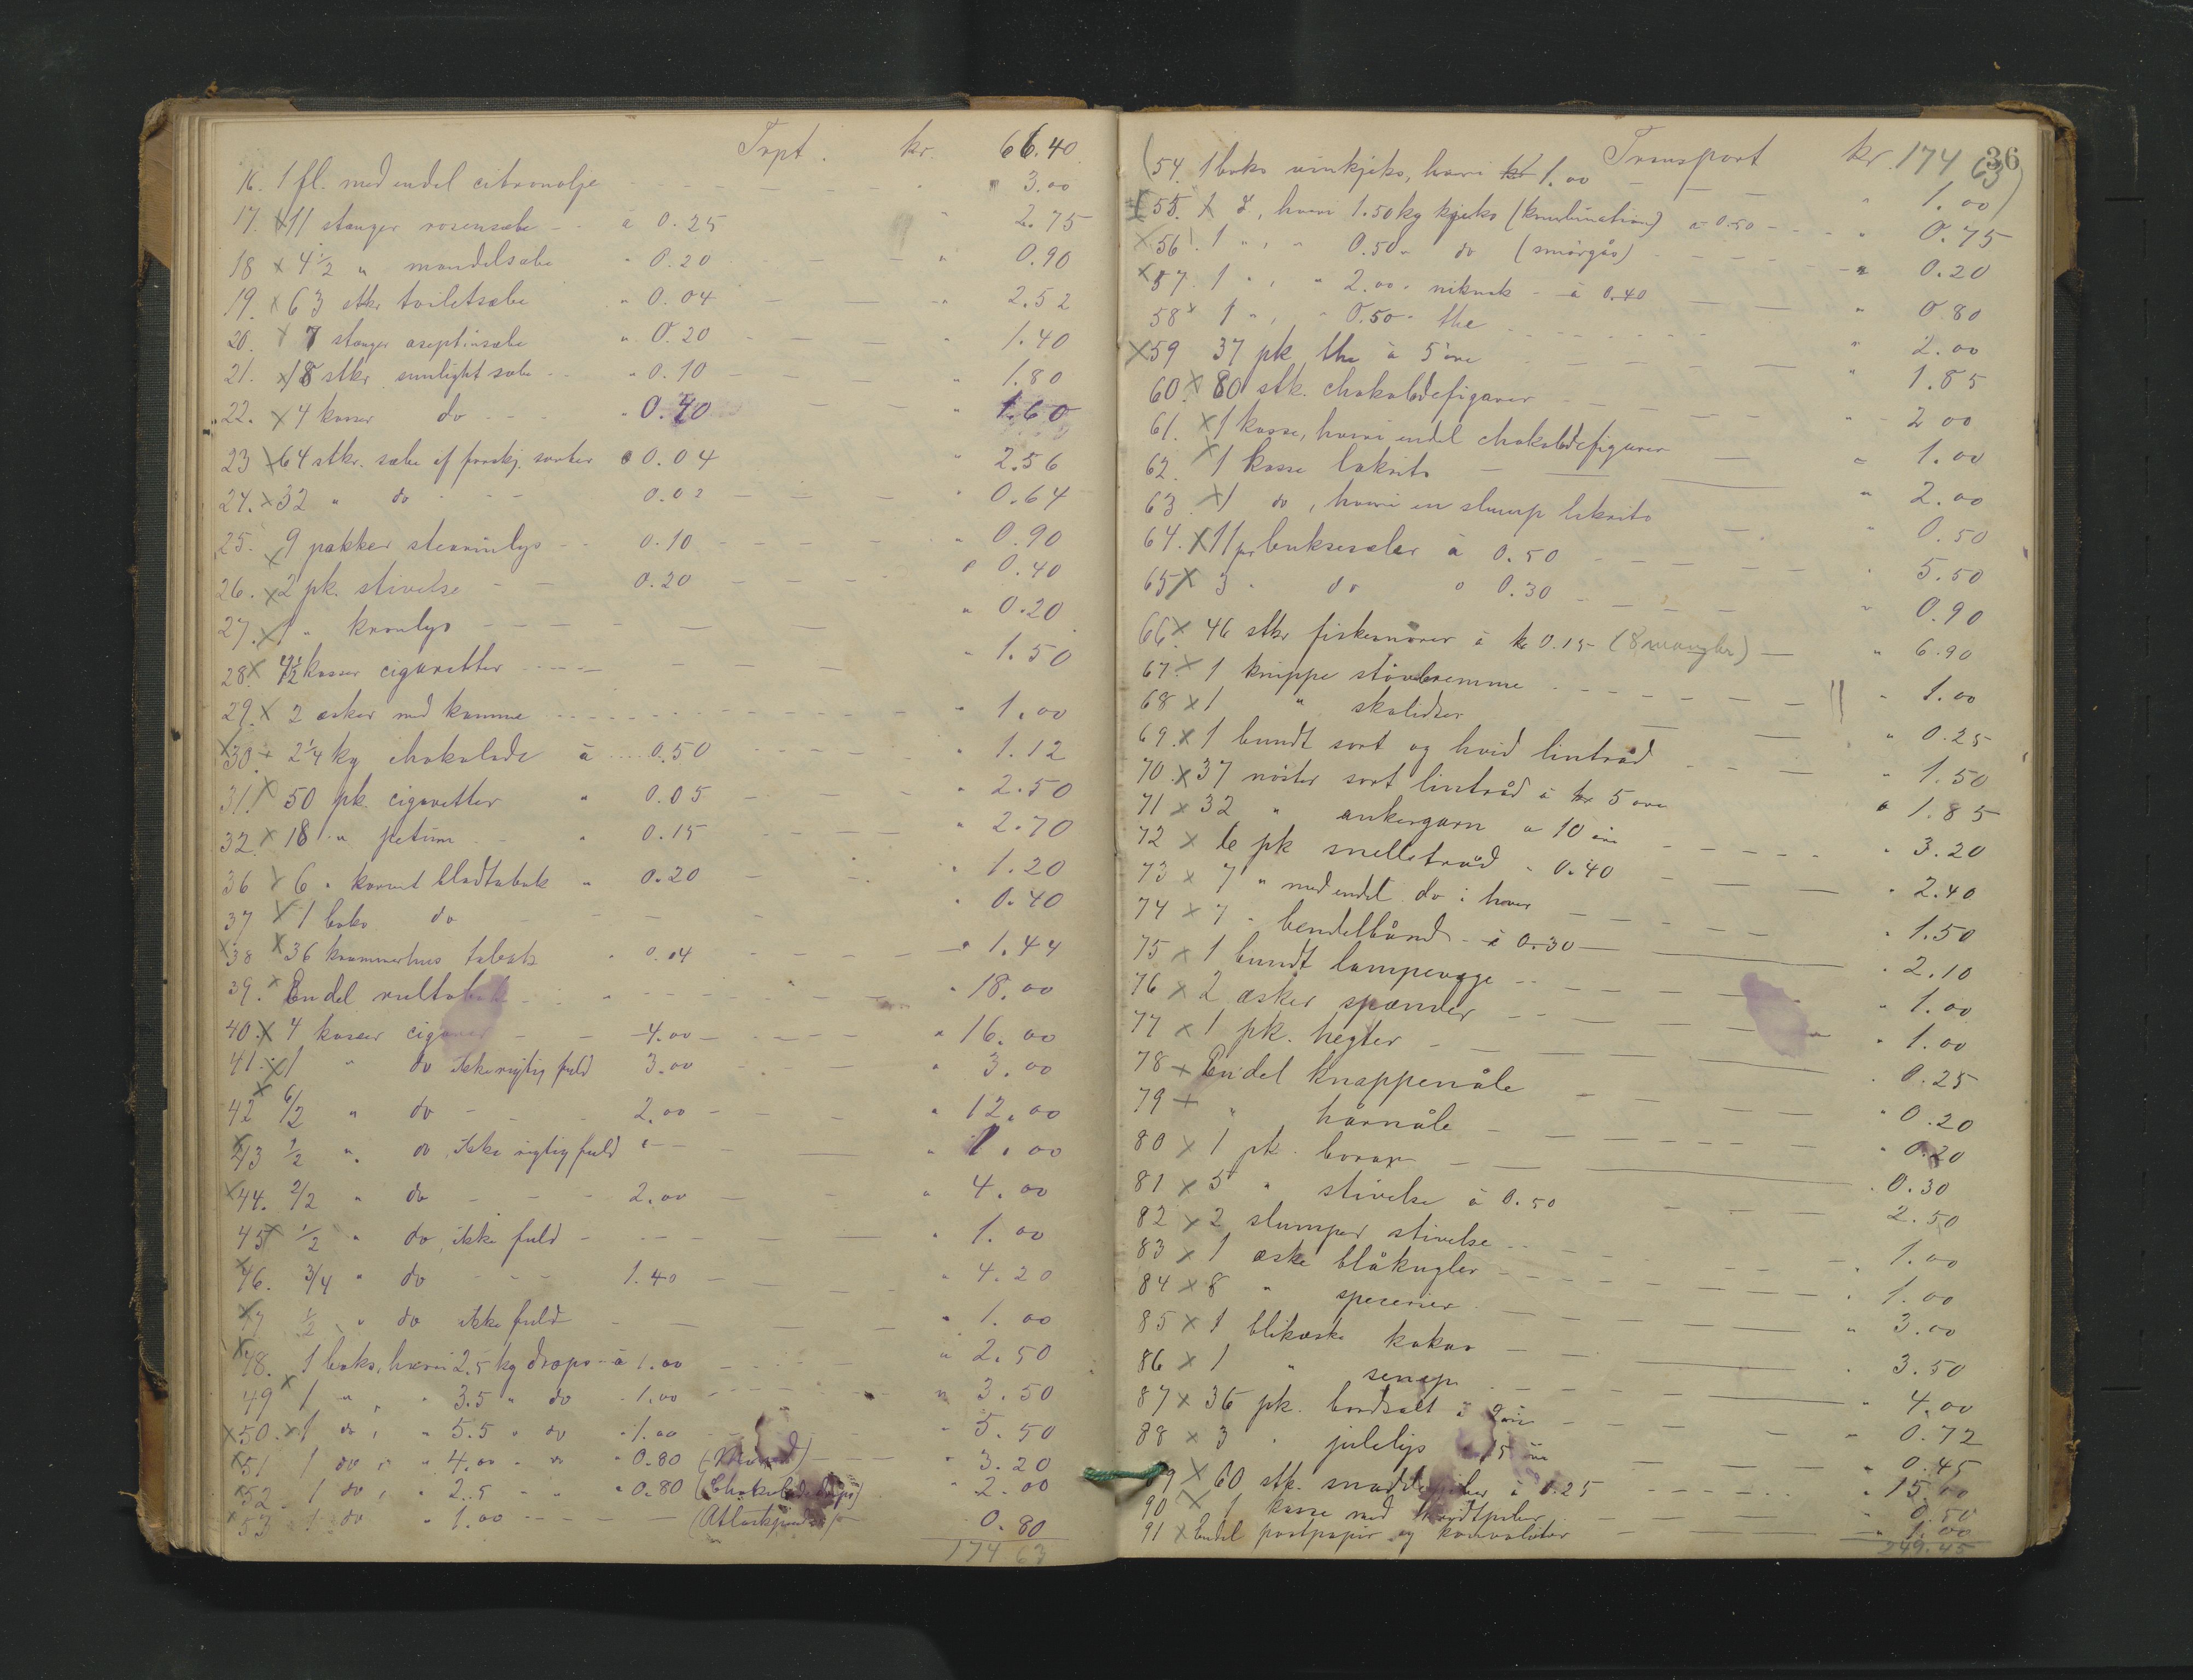 Trpt. kr. 66.40
16. 1 fl. med endel citronolje - - - " 3.00
17. x 11 stanger rosensæbe - - à 0.25 " 2.75
18 x 4 1/2 " mandelsæbe " 0.20 - - - " 0.90
19. x 63 stkr toiletsæbe " 0.04 - - - " 2.52
20. x 7 stanger aseptinsæbe " 0.20 - - - " 1.40
21. x 18 stkr sunlightsæbe - - " 0.10 - - - " 1.80
22. x 4 kasser do - - - " 0.40 - - - " 1.60
23 x 64 stkr. sæbe af forskj. sorter à 0.04 " 2.56
24. x 32 " do - - - 0.02 - - - " 0.64
25. x 9 pakker stearinlys - - 0.10 - - - " 0.90
26. x 2 pk. stivelse - - 0.20 - - - " 0.40
27. x 1 " kronlys - - - - - " 0.20
28 x 4 1/2 kasser cigaretter - - - - " 1.50
29. x 2 æsker med kamme - - - - " 1.00
x 30. 2 1/4 kg chokolade à .... 0.50 - - - " 1.12
31. x 50 pk. cigaretter " 0.05 - - - " 2.50
32. x 18 " petum " 0.15 - - - " 2.70
36 x 6 " karvet bladtobak " 0.20 - - - " 1.20
37 x 1 boks do - - - - " 0.40
x 38 x 36 kræmmerhus tobak " 0.04 - - - " 1.44
39. x Endel rultobak - - - - " 18.00
40. x 4 kasser cigarer - - 4.00 - - - " 16.00
41. x 1 " do ikke rigtig fuld 3.00 - - - " 3.00
42 x 6/2 " do - - - 2.00 - - - " 12.00
x 43 1/2 " do, ikke rigtig fuld - - - " 1.00
x 44. 2/2 " do - - - 2.00 - - " 4.00
45 x 1/2 " do, ikke fuld - - - - " 1.00
x 46. 3/4 " do - - - 1.40 - " 4.20
x 47 1/2 " do ikke fuld - - - " 1.00
x 48. 1 boks, hvori 2.5 kg drops - à 1.00 - - - " 2.50
49 x 1 " , " 3.5 " do - 1.00 - - - " 3.50
x 50. x 1 do , " 5.5 " do " 1.00 - - - " 5.50
x 51 1 do , " 4.00 " do " 0.80 - - - " 3.20
x 52. 1 do , " 2.5 - " " 0.80 (Chokoladedrops) " 2.00
x 53 1 do " 1.00 - - - - 0.80
174 63
Transport kr 174 63 36
(54. 1 boks vinkjeks, hvori 1.00 - - - " 1.00)
55. x 1 d, hvori 1.50 kg kjeks (kombination) à 0.50 - - - " 0.75
x 56. 1 " , " 0.50 " do (smörgås) - - - " 0.20
x 57. 1 " , " 2.00 " niknak - à 0.40 - " 0.80
58 x 1 " , " 0.50 " the - - - " 2.00
x 59 37 pk. the à 5 øre - - - " 1.85
60. x 80 stk. chokoladefigurer - - - " 2 00
61. x 1 kasse, hvori endel chokoladefigurer - " 1.00
62. x 1 kasse lakrits - - - " 2.00
63. x 1 do , hvori en slump lakrits - " 0.50
64. x 11 pr buksesæler à 0.50 - - - " 5.50
65 x 3 " do " 0.30 - - - " 0.90
66 x 46 stkr fiskesnører à kr 0.15 (8 mangler) - " 6.90
67. x 1 knippe støvleremme - - - " 1.00
68 x 1 " skolidser - - " 0.25
69. x 1 bundt sort og hvid lintråd - - - " 1.50
70. x 37 nøster sort lintråd à kr 5 øre " 1.85
71 x 32 " ankergarn a 10 øre - - - " 3.20
72 x 6 pk snelletråd " 0.40 - - - " 2.40
73 x 7 " med endel do i hver - - - " 1.50
74 x 7 " bendelbånd - à 0.30 - - " 2.10
75 x 1 bundt lampevæge - - - " 1.00
76 x 2 æsker spænder - - - " 1.00
77 x 1 pk. hegter - - - " 0.25
78 x Endel knappenåle - - - " 0.20
79 x " hårnåle - - - " 0.20
80 x 1 pk. borax - - - " 0.30
81 x 5 " stivelse à 0.50 - - - 2.50
82 x 2 slumper stivelse - - - " 1.00
83 x 1 æske blåkugler - - - " 1.00
84 x 8 " specerier - - - " 3.00
85 x 1 blikæske kakao - - - " 3.50
86 x 1 " senep - - - " 4.00
87 x 36 pk. bordsalt à 2 øre - - - " 0.72
88 x 3 " julelys 15 øre - - - " 0.45
89 x 60 stk. à 0.25 - - - " 15.00
90 x 1 kasse med - - - " 0.50
91 x Endel postpapir og konvolutter - - - " 1.00
249.45